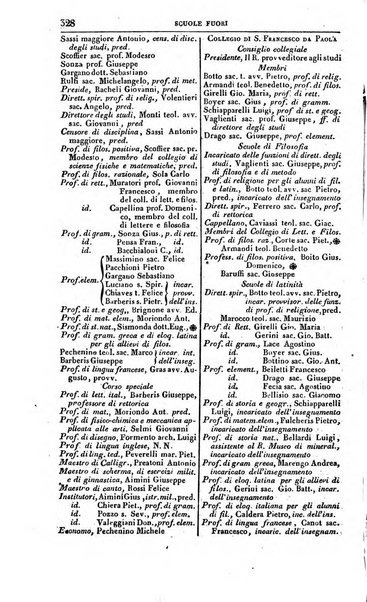 328
SCUOLE FUORI
Sassi maggiore Antonio, cens. disc.
degli studi, pred.
Scoffier sac. prof. Modesto
Sonza prof. Giuseppe
Gargano dott. Sebastiano
Prof. di rel., Michelangelo, prof. di mat.
Preside, Racheli Giovanni, pred.
Dirett. spir. prof. di relig., Volentieri
sac. Angelo, pred.
Direttore degli studi, Monti teol. avv.
sac. Giovanni, pred.
Censore di disciplina, Sassi Antonio
maggiore, pred.
Prof. di filos. positiva, Scoffier sac. pr.
Modesto, membro del collegio di
scienze fisiche e matematiche, pred.
Prof. di filos. razionale, Sola Carlo
Prof. di rett., Muratori prof. Giovanni
Francesco, membro del
coll. di lett. e filos.
id. Capellina prof. Domeni-
co, membro del coll.
di lettere e filosofia
Prof. di gram., Sonza Gius., pr. di gramm.
id. Pensa Fran., id.
id. Bacchialoni C., id.
Prof. elem.
Massimino sac. Felice
Pacchioni Pietro
Gargano Sebastiano
Luciano s. Spir.
Chiaves t. Felice
Barberis s. Pietr.
incar. prov. dell'ins.
Prof. di st. e geog., Brignone avv. Ed.
Prof. di mat. elem., Moriondo Ant.
Prof. di st. nat., Sismonda dott. Eug., ✠
Prof. di gramm. greca e di eloq. latina
per gli allievi di fil.
Pechenino teol. sac. Marco
Barberis Giuseppe
incar. int. dell'inseg.
Prof. di lingua francese, Gras avv. Au-
gusto, provv.
Corso speciale
Prof. di lett. ital., Barberis Giuseppe,
professore di rettorica
Prof. di mat., Moriondo Ant. pred.
Prof. di fisico-chimica e meccanica ap-
plicata alle arti, Selmi Giovanni
Prof. di disegno, Formento arch. Luigi
Prof. di lingua inglese, N. N.
Prof. di lingua ted., Peverelli mar. pred.
Maestro di Calligr., Pratesi Antonio
Maestro di scherma, di esercizi milit.
e di ginnastica, Aimini Giuseppe
Maestro di canto, Rossi Felice
Institutori, Aimini Gius., istr. mil., pred.
id. Chiera Piet., prof. di gram.
id. Pozzo s. Sev., prof. di gram.
id. Valeggiani Don., prof. di gram.
Economo, Pechenino Michele
COLLEGIO DI S. FRANCESCO DA PAOLA
Consiglio collegiale
Presidente, Il R. provveditore agli studi
Membri
Botto sac. t. avv. Pietro, prof. di filos.
Armandi Benedetto, prof. di filos.
Girelli Gius. Mar., prof. di rett.
Boyer sac. Gius., prof. di gramm.
Schiapparelli Luigi, prof. di st. e geogr.
Vaglienti sac. Giuseppe, ff. di
direttore di studi
Drago sac. Giuseppe, prof. element.
Scuole di Filosofia
Incaricato delle funzioni di dirett. degli
studi, Vaglienti sac. Giuseppe, prof.
di filosofia e di metodo
Prof. di religione per gli alunni di fil.
e latin., Botto teol. avv. Pietro,
incaricato dell'insegnamento
Dirett. spir., Ferrero sac. Carlo, prof.
di rettorica
Cappellano, Caviassi teol. sac. Gius.
Membri del Collegio di Lett. e Filos.
Prof. di filos. raz., Corte sac. Piet., ✠
Armandi teol. Benedetto
Profess. di filos. positiva, Botto Gius.
Domenico, ✠
Baruffi sac. Giuseppe
Scuole di latinità
Dirett. spir., Botto teol. avv. Pietro,
incar. provvisor. delle funz.
di prof. di religione, pred.
Marocco teol. sac. Maurizio
Prof. di Rett. Girelli Gio. Maria
id. Gerini sac. Gio. Batt.
Prof. di gram., Luce Agostino
id. Boyer sac. Gius.
id. Bottino sac. Gio. Ant.
Prof. element., Beiletti Francesco
id. Drago sac. Giuseppe
id. Fecia sac. Agostino
id. Bellisio sac. Giacomo
Prof. di storia e geogr., Schiapparelli
Luigi, incaricato dell'insegnamento
Prof. di matem. elem., Falchetti Pietro,
incaricato dell'insegnamento
Prof. di storia nat., Bellardi Luigi,
assistente al R. Museo di mineral.,
incaricato dell'insegnamento
Prof. di gram. greca, Marchisio Andrea,
incaricato dell'insegnamento
Prof. di eloq. latina per gli allievi di
fil., Gerini sac. Gio. Batt., incar.
dell'insegnamento
Prof. di eloq. italiana per gli alunni
di fil., Caldera Pietro, inc. dell'ins.
Prof. di lingua francese, Canot sac.
Francesco, incaric. dell'insegnamento